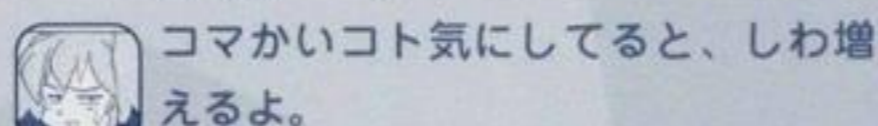 コマかいコト気にしてると、しわ増
えるよ。